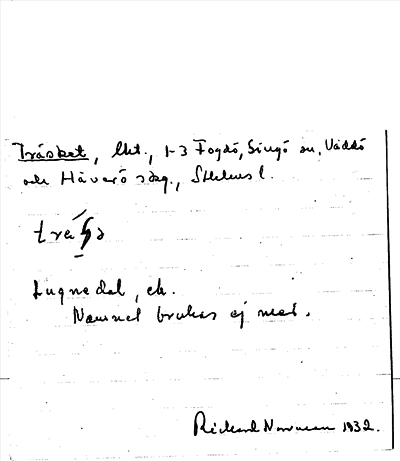 Träsket, lht., 1-3 Fogdö, Singö sn, Väddö
och Häverö skg., Sthlms l.
Lugnedel, ek.
Namnet brukas ej mer.
Rickard Norrman 1932.